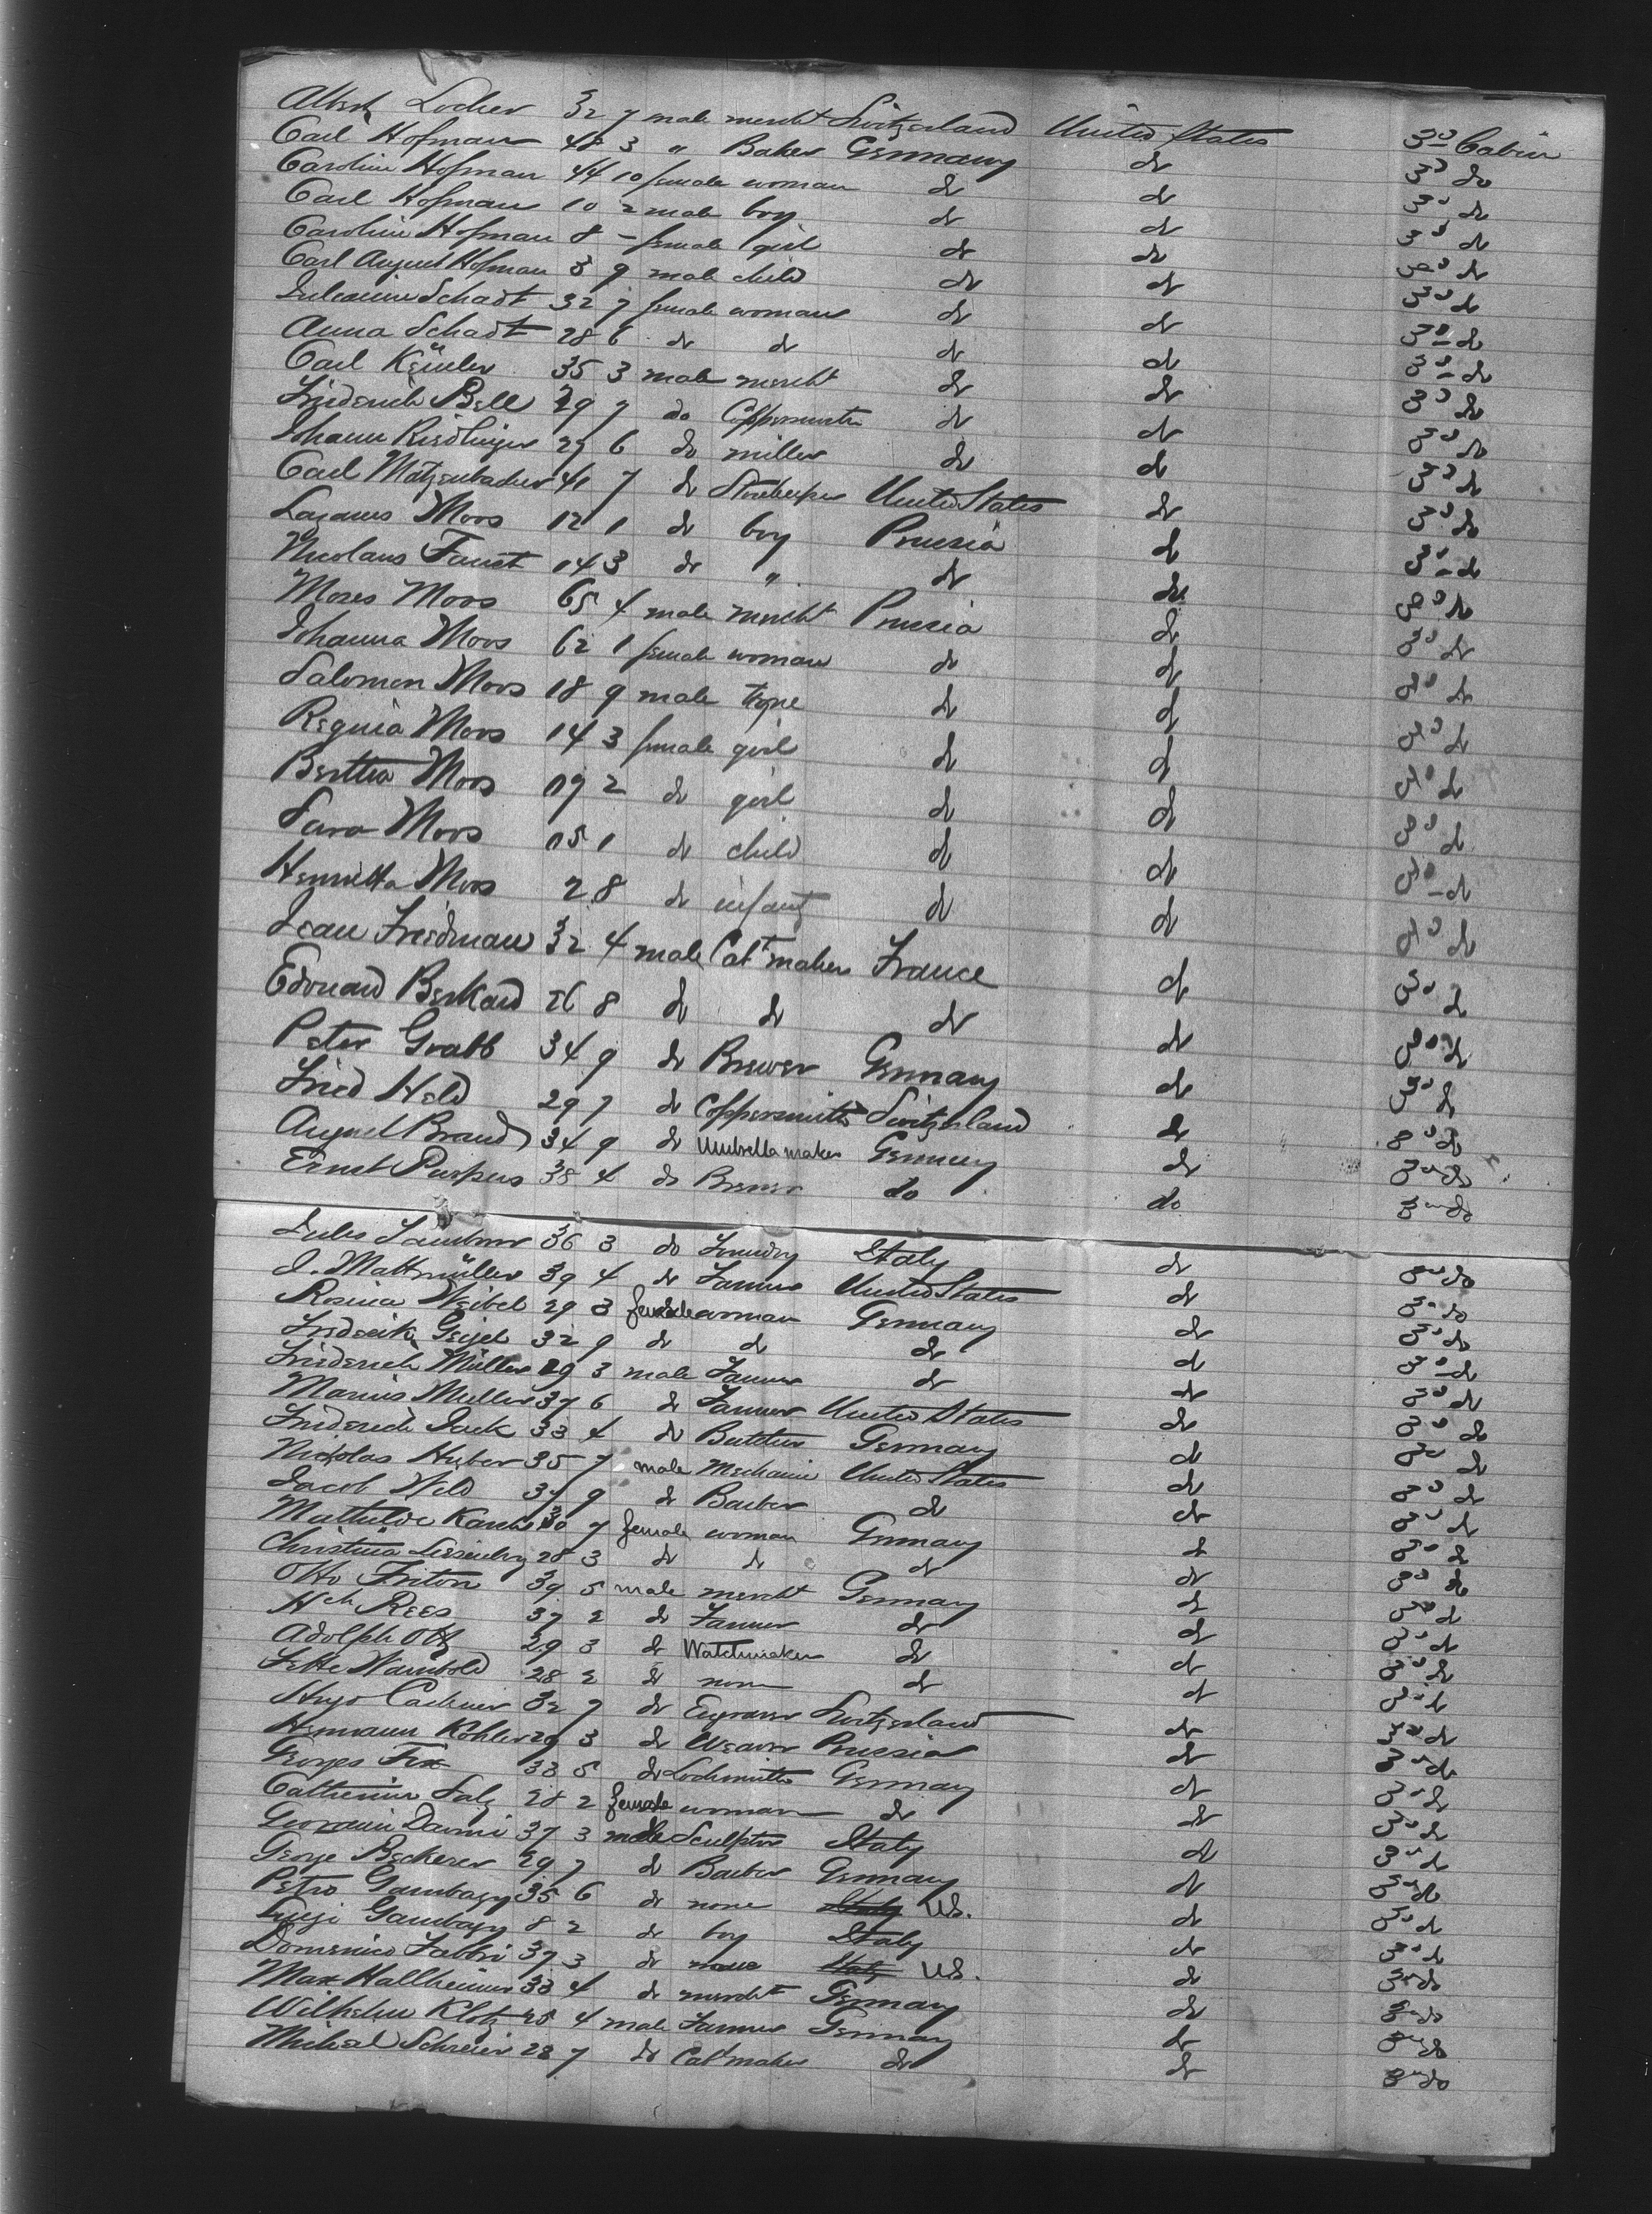 Albert Locher 32 7 male mercht Switzerland United States 3d Cabin
Carl Hofman 48 3 " Baker Germany do 3d do
Caroline Hofman 44 10 female woman do do 3d do
Carl Hofman 10 2 male boy do do 3d do
Caroline Hofman 8 - female girl do do 3d do
Carl August Hofman 3 9 male child do do 3d do
Schadt 32 7 female woman do do 3d do
Anna Schadt 28 6 do do do do 3d do
Carl 35 3 male mercht do do 3d do
Friederich Bell 29 7 do Coppersmith do do 3d do
Johann Riedlinger 27 6 do miller do do 3d do
Carl Matzenbacher 41 7 do Storekeeper United States do 3d do
Lazarus Moos 12 1 do boy Prussia do 3d do
Nicolaus Faust 14 3 do " do do 3d do
Moses Moos 65 4 male mercht Prussia do 3d do
Johanna Moos 62 1 female woman do do 3d do
Salomon Moos 18 9 male do do 3d do
Regina Moos 14 3 female girl do do 3d do
Bertha Moos 2 do girl do do 3d do
Sara Moos 1 do child do do 3d do
Henrietta Moos 2 8 do infant do do 3d do
Jean Friedman 32 4 male Cabt maker France do 3d do
Edouard Berkard 26 8 do do do do 3d do
Peter Grabb 34 9 do Brewer Germany do 3d do
Fried Held 29 7 do Coppersmith Switzerland do 3d do
August Brand 34 9 do Umbrella maker Germany do 3d do
Ernst Purpus 38 4 do Brewer do do 3d do
Jules 36 3 do Foundry Italy do 3d do
J. Mattmüller 39 4 do Farmer United States do 3d do
Rosina Weibel 29 3 female woman Germany do 3d do
Frederike Geigel 32 9 do do do do 3d do
Friederich Müller 29 3 male Farmer do do 3d do
Marius Muller 37 6 do Farmer United States do 3d do
Friederich Jack 33 4 do Butcher Germany do 3d do
Nicholas Huber 35 7 male Mechanic United States do 3d do
Jacob Weld 37 9 do Barber do do 3d do
Mathilde 30 7 female woman Germany do 3d do
Christina 28 3 do do do do 3d do
Otto Friton 39 5 male mercht Germany do 3d do
Hch Rees 37 2 do Farmer do do 3d do
Adolph Ott 29 3 do Watchmaker do do 3d do
Wambold 28 2 do none do do 3d do
Hugo 32 7 do Engraver Switzerland do 3d do
Hermann Köhler 29 3 do Weaver Prussia do 3d do
Georges Fix 33 5 do Locksmith Germany do 3d do
Catherine Salz 28 2 female woman do do 3d do
Giovanni 37 3 male Sculptor Italy do 3d do
George Beckerer 29 7 do Barber Germany do 3d do
Petro Gambazy 35 6 do none Italy U.S. do 3d do
Luigi Gambazy 8 2 do boy Italy do 3d do
Domenico Fabbri 37 3 do none Italy U.S. do 3d do
Max Hallheimer 33 4 do mercht Germany do 3d do
Wilhelm Klotz 25 4 male Farmer Germany do 3d do
Michael Schreier 28 7 do Cabt maker do do 3d do